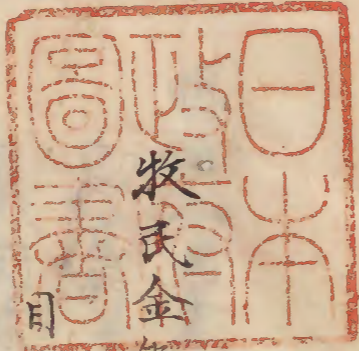 日本
政府
圖書
牧民金
目